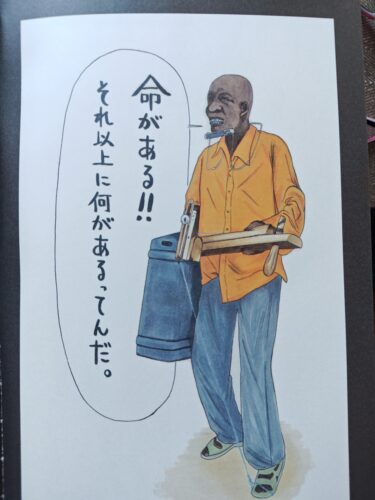 命がある!!
それ以上に何があるってんだ。